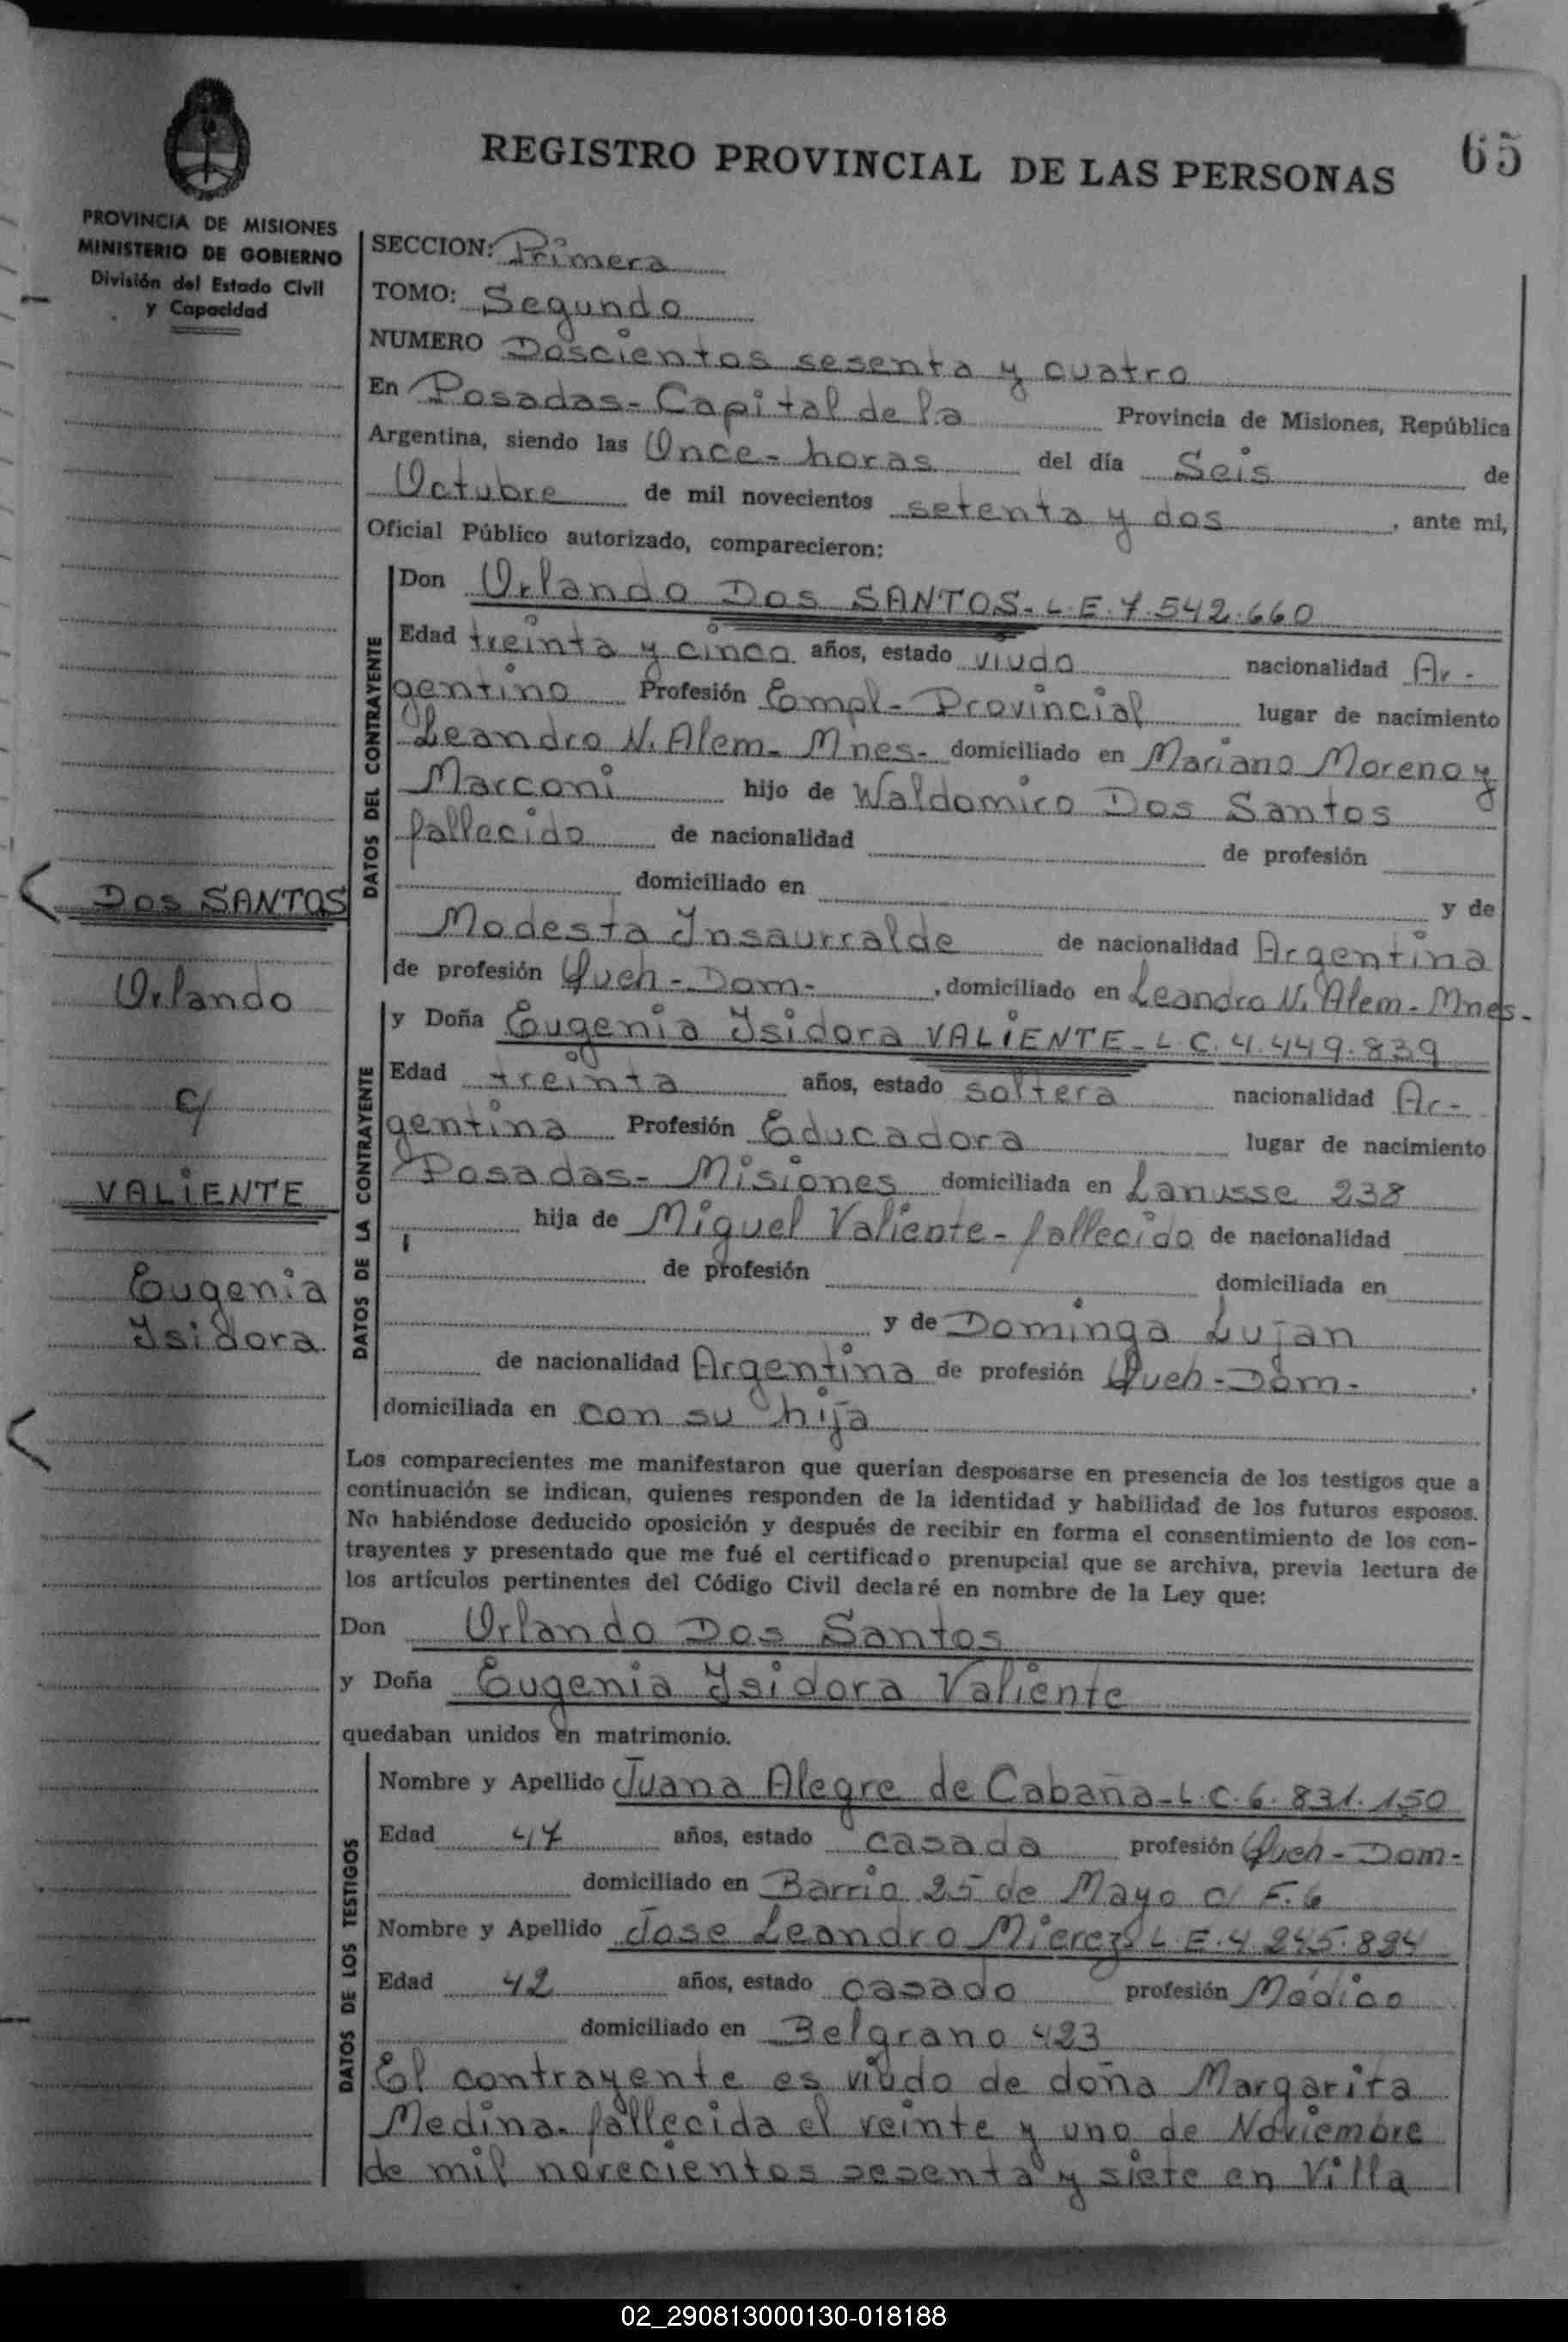 REGISTRO PROVINCIAL DE LAS PERSONAS
65
PROVINCIA DE MISIONES
MINISTERIO DE GOBIERNO
División del Estado Civil
y Capacidad
SECCION: Primera
TOMO: Segundo
NUMERO Doscientos sesenta y cuatro
En Posadas- Capital de la Provincia de Misiones, República
Argentina, siendo las Once- horas del día Seis de
Octubre de mil novecientos setenta y dos, ante mi,
Oficial Público autorizado, comparecieron:
DATOS DEL CONTRAYENTE
Don Orlando Dos SANTOS- L.E. 7.542.660
Edad treinta y cinco años, estado viudo nacionalidad Ar-
gentino Profesión Empl- Provincial lugar de nacimiento
Leandro N. Alem- Mnes- domiciliado en Mariano Moreno y
Marconi hijo de Waldomiro Dos Santos
fallecido de nacionalidad de profesión
domiciliado en y de
Modesta Insaurralde de nacionalidad Argentina
de profesión Queh-Dom-, domiciliado en Leandro N. Alem-Mnes-
DOS SANTOS
Orlando
c/
VALIENTE
Eugenia
Isidora
DATOS DE LA CONTRAYENTE
y Doña Eugenia Isidora VALIENTE- L.C. 4.449.839
Edad treinta años, estado soltera nacionalidad Ar-
gentina Profesión Educadora lugar de nacimiento
Posadas- Misiones domiciliada en Lanusse 238
hija de Miguel Valiente- fallecido de nacionalidad
de profesión domiciliada en
y de Dominga Lujan
de nacionalidad Argentina de profesión Queh-Dom-,
domiciliada en con su hija
Los comparecientes me manifestaron que querían desposarse en presencia de los testigos que a
continuación se indican, quienes responden de la identidad y habilidad de los futuros esposos.
No habiéndose deducido oposición y después de recibir en forma el consentimiento de los con-
trayentes y presentado que me fué el certificado prenupcial que se archiva, previa lectura de
los artículos pertinentes del Código Civil declaré en nombre de la Ley que:
Don Orlando Dos Santos
y Doña Eugenia Isidora Valiente
quedaban unidos en matrimonio.
DATOS DE LOS TESTIGOS
Nombre y Apellido Juana Alegre de Cabaña- L.C. 6.831.150
Edad 47 años, estado casada profesión Queh-Dom-
domiciliado en Barrio 25 de Mayo c/ F.6
Nombre y Apellido Jose Leandro Mierez L.E. 4.245.824
Edad 42 años, estado casado profesión Médico
domiciliado en Belgrano 423
El contrayente es viudo de doña Margarita
Medina- fallecida el veinte y uno de Noviembre
de mil novecientos sesenta y siete en Villa
02_290813000130-018188